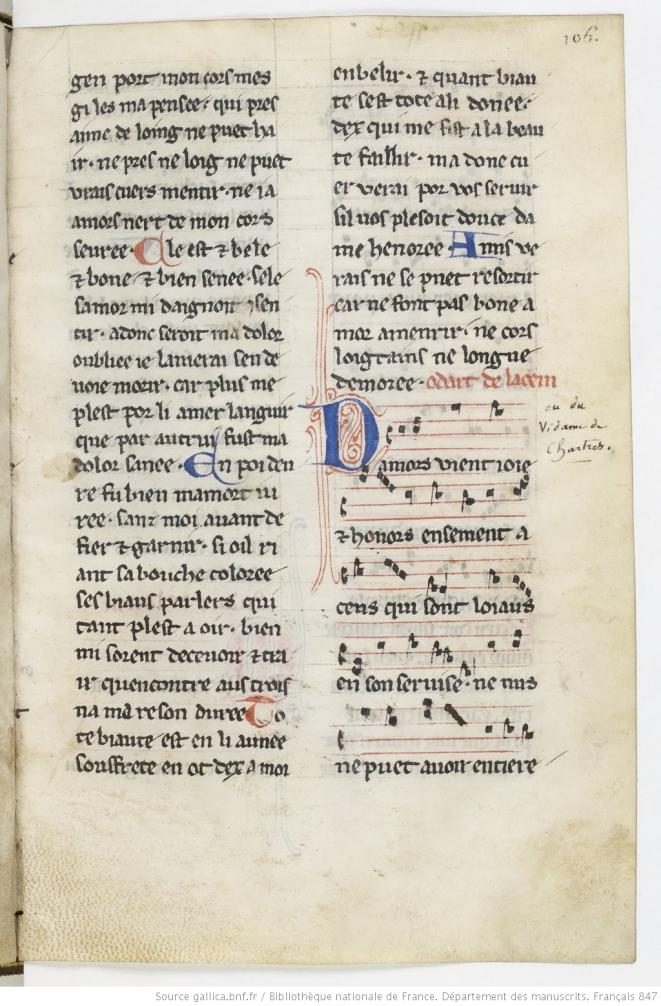 106.
gen port mon cors mes
gi les ma pensee · qui pres
aime de loing ne puet ha
ir · ne pres ne loig ne puet
vrais cuers mentir · ne ia
amors nert de mon cors
seuree · Ele est ⁊ bele
⁊ bone ⁊ bien senee · sele
samor mi daignoit sen
tir · adonc seroit ma dolor
oubliee ie lamerai sen de
uoie morir · car plus me
plest por li amer languir
que par autrui fust ma
dolor sanee · En poi deu
re fu bien mamort iu
ree · sanz moi auant de
fier ⁊ garnir · si oil ri
ant sa bouche coloree
ses biaus parlers qui
tant plest a oir · bien
mi sorent decevoir ⁊ tra
ir quencontre aus trois
na ma reson duree To
te biaute est en li aunee
souffrete en ot dex a moi
enbelir · ⁊ quant biau
te sest tote a li donee ·
dex qui me fist a la beau
te faillir · ma done cu
er verai por vos seruir
sil uos plesoit douce da
me henoree · Amis ve
rais ne se puet resortir
car ne font pas bone a
mor amenrir · ne cors
loigtains ne longue
demoree · odart de laceni
ou du
Vidame de
Chartres.
Damors vient ioie
⁊ honors ensement a
ceus qui sont loiaus
en son seruise · ne nus
ne puet auoir entiere
Source gallica.bnf.fr / Bibliothèque nationale de France. Département des manuscrits. Français 847